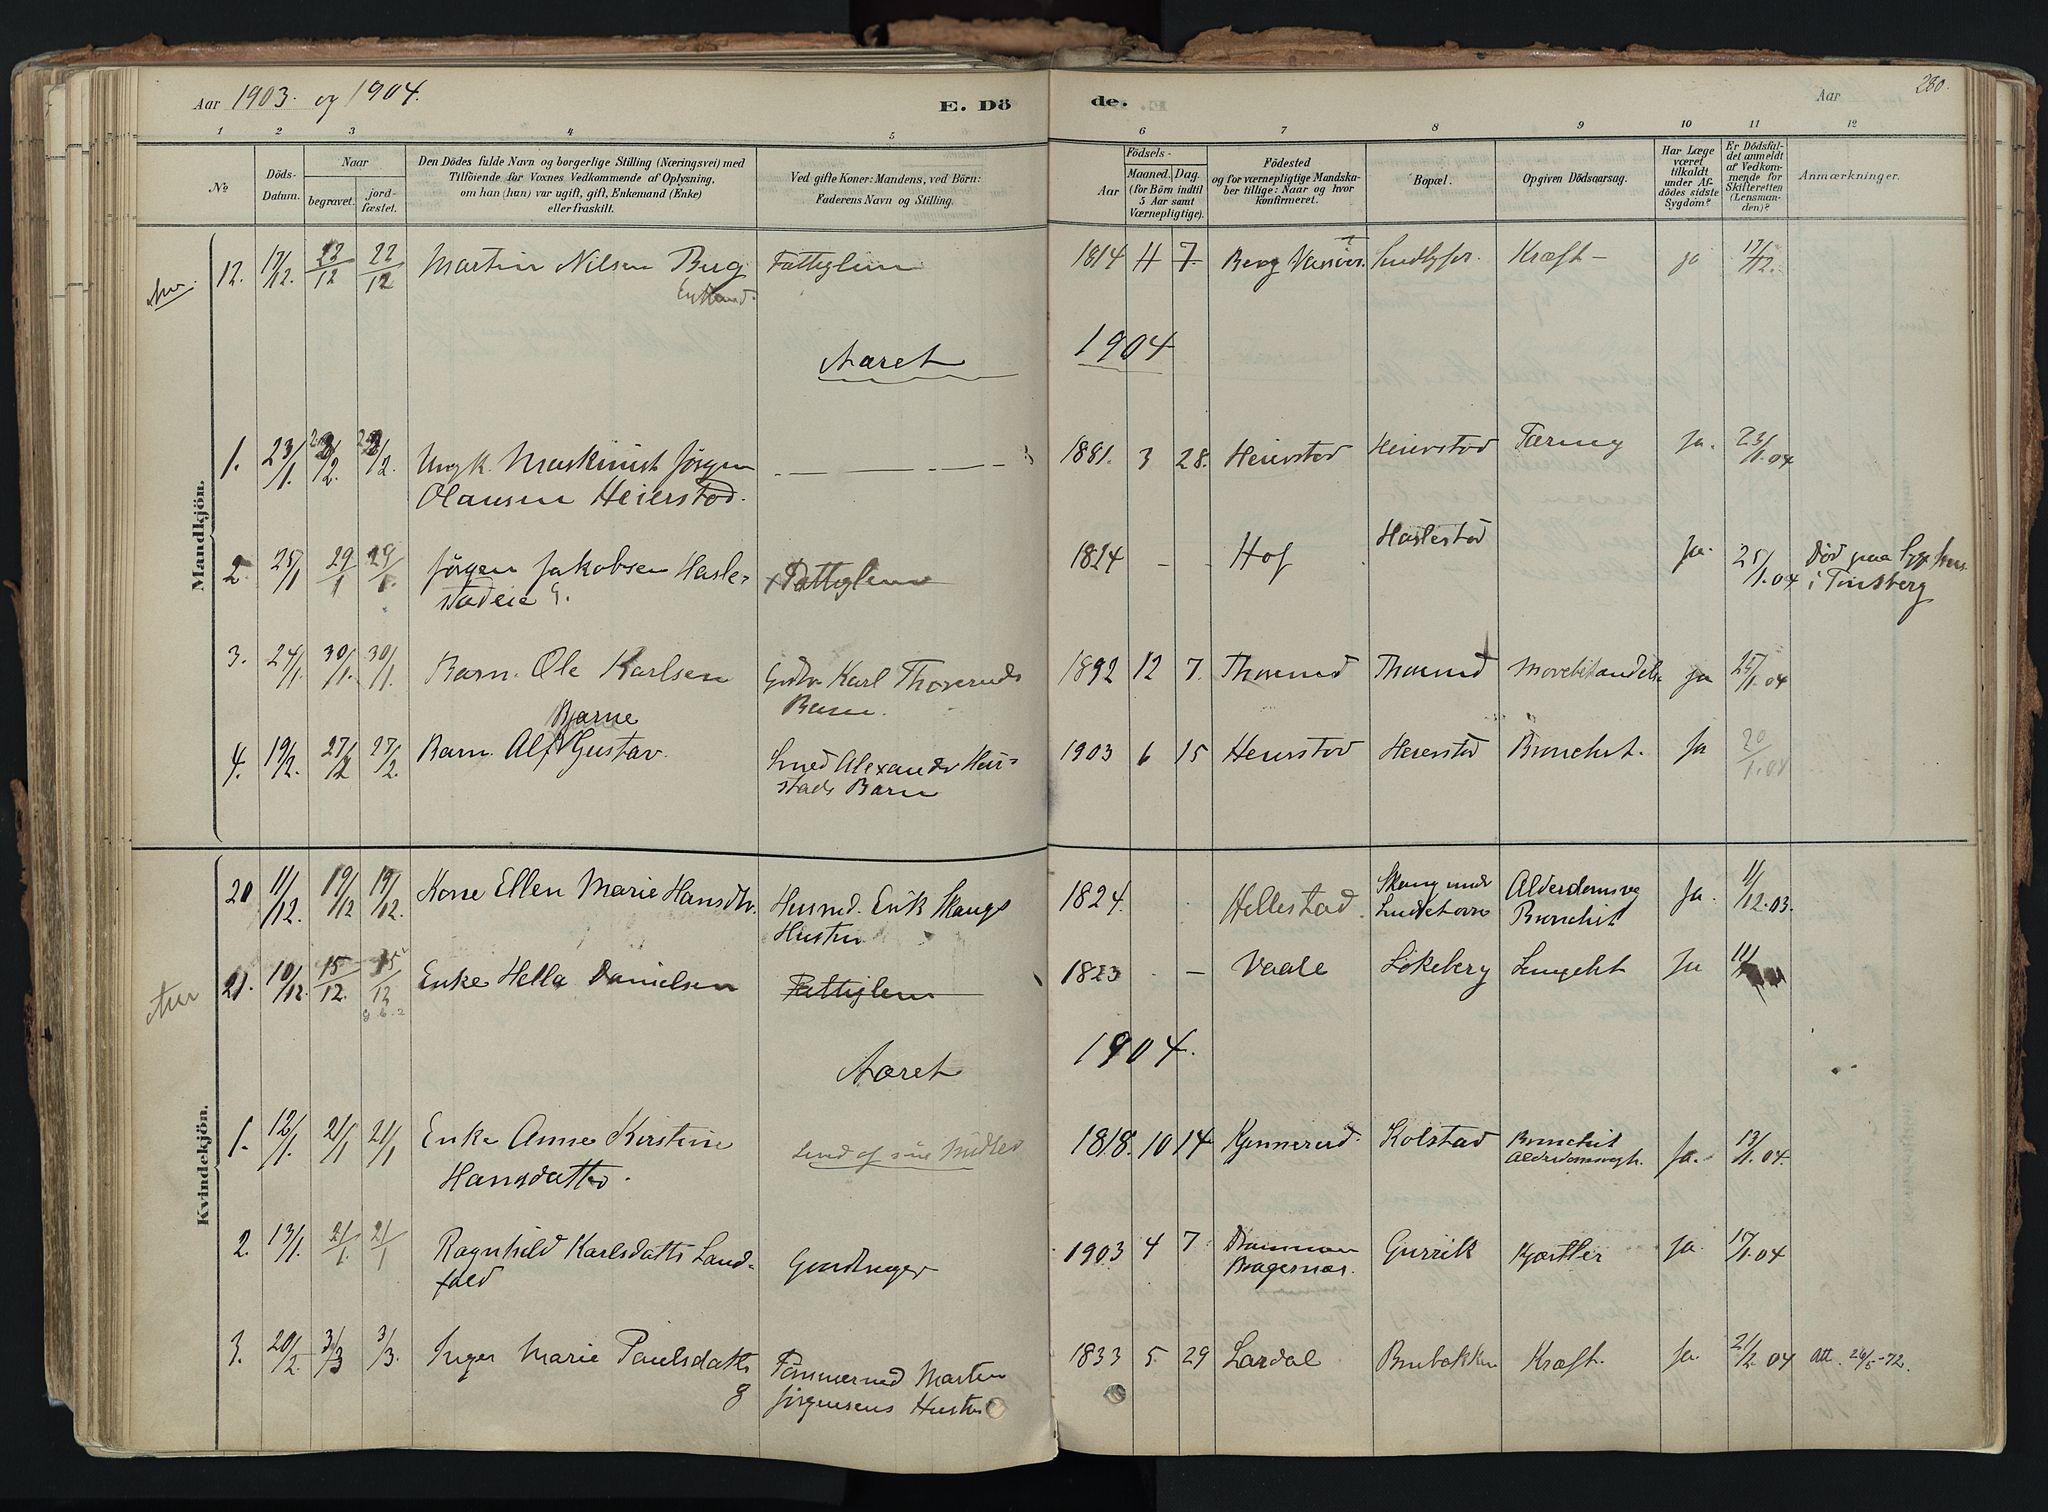 Aar 1903. og 1904.
E. Döde.
Aar
280.
1 2 3 4 5 6 7 8 9 10 11 12
№
Döds-Datum.
Naar
begravet.
jord-fæstet.
Den Dödes fulde Navn og borgerlige Stilling (Næringsvei) med
Tilföiende for Voxnes Vedkommende af Oplysning,
om han (hun) var ugift, gift, Enkemand (Enke)
eller fraskilt.
Ved gifte Koner: Mandens, ved Börn:
Faderens Navn og Stilling.
Födsels-
Aar
Maaned. Dag.
(for Börn indtil
5 Aar samt
Værnepligtige).
Födested
og for værnepligtige Mandska-
ber tillige: Naar og hvor
konfirmeret.
Bopæl.
Opgiven Dödsaarsag.
Har Læge
været
tilkaldt
under Af-
dödes sidste
Sygdom?
Er Dödsfal-
det anmeldt
af Vedkom-
mende for
Skifteretten
(Lensman-
den)?
Anmærkninger.
Mandkjön.
12. 17/12. 22/12 22/12 Martin Nilsen Berg Fattiglem 1814 11 7. Berg Kræft ja 17/12.
Enkemd.
Aaret 1904
1. 23/1. 2/2. 2/2. Ungk. Maskinist Jörgen 1881. 3 28. Heierstad Heierstad Tæring Ja. 23/1.04
Olausen Heierstad.
2. 25/1 29/1 29/1 Jörgen Jakobsen Hasle- Fattiglem 1824 - - Hof Haslestad Ja. 25/1.04 Död paa Sygehus
stadeie g. i Tönsberg
3. 24/1. 30/1. 30/1. Barn. Ole Karlsen Gbr. Karl Thoveruds 1892 12 7. Ja 25/1.04
Barn.
Bjarne
4. 19/2. 27/2 27/2. Barn. Alf Gustav. Smed Alexander Heir- 1903 6 15 Heierstad Heierstad Bronchit. Ja 20/1.04
stads Barn
Kvindekjön.
20 11/12. 19/12 19/12. Kone Ellen Marie Hansdtr. Husmd. Erik Skaugs 1824. Hellestad. Skaug under Alderdomsvag Ja. 11/12.03.
Hustru Bronchit
21. 10/12. 15/12. 15/12 Enke Hella Danielsen Fattiglem 1823 - - Vaale Lökeberg Ja 11/
Aaret 1904.
1. 12/1. 21/1 21/1 Enke Anne Kirstine Lever af sine Midler 1818. 10 14 Kjennerud. Kolstad Bronchit Ja. 13/1.04.
Hansdatter. Alderdomsvagh.
2. 13/1. 21/1. 21/1 Ragnhild Karlsdatter Land- Gaardbruger 1903 4 7 Drammen Gurrik Ja. 17/1.04
fald Bragernæs.
3. 20/2. 3/3 3/3. Inger Marie Paulsdatter Tömmermd Marten 1833 5. 29 Lardal Brubakken Kræft. Ja 21/2.04 Att. 26/5-72.
g Jörgensens Hustru